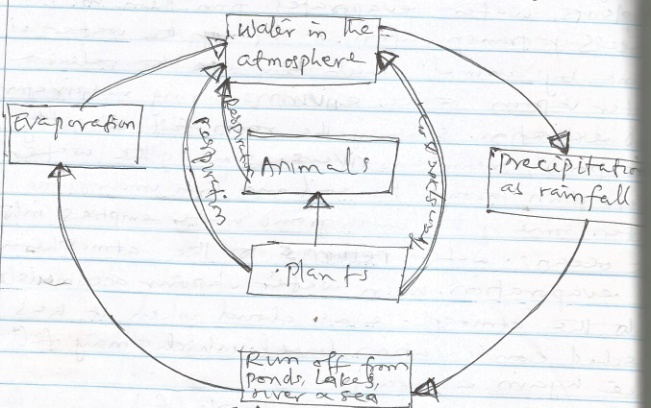 Water in the
atmosphere
Evaporation
respiration
respiration
Transpiration
Animals
precipitation
as rainfall
Plants
Run off from
ponds, Lakes,
river & sea